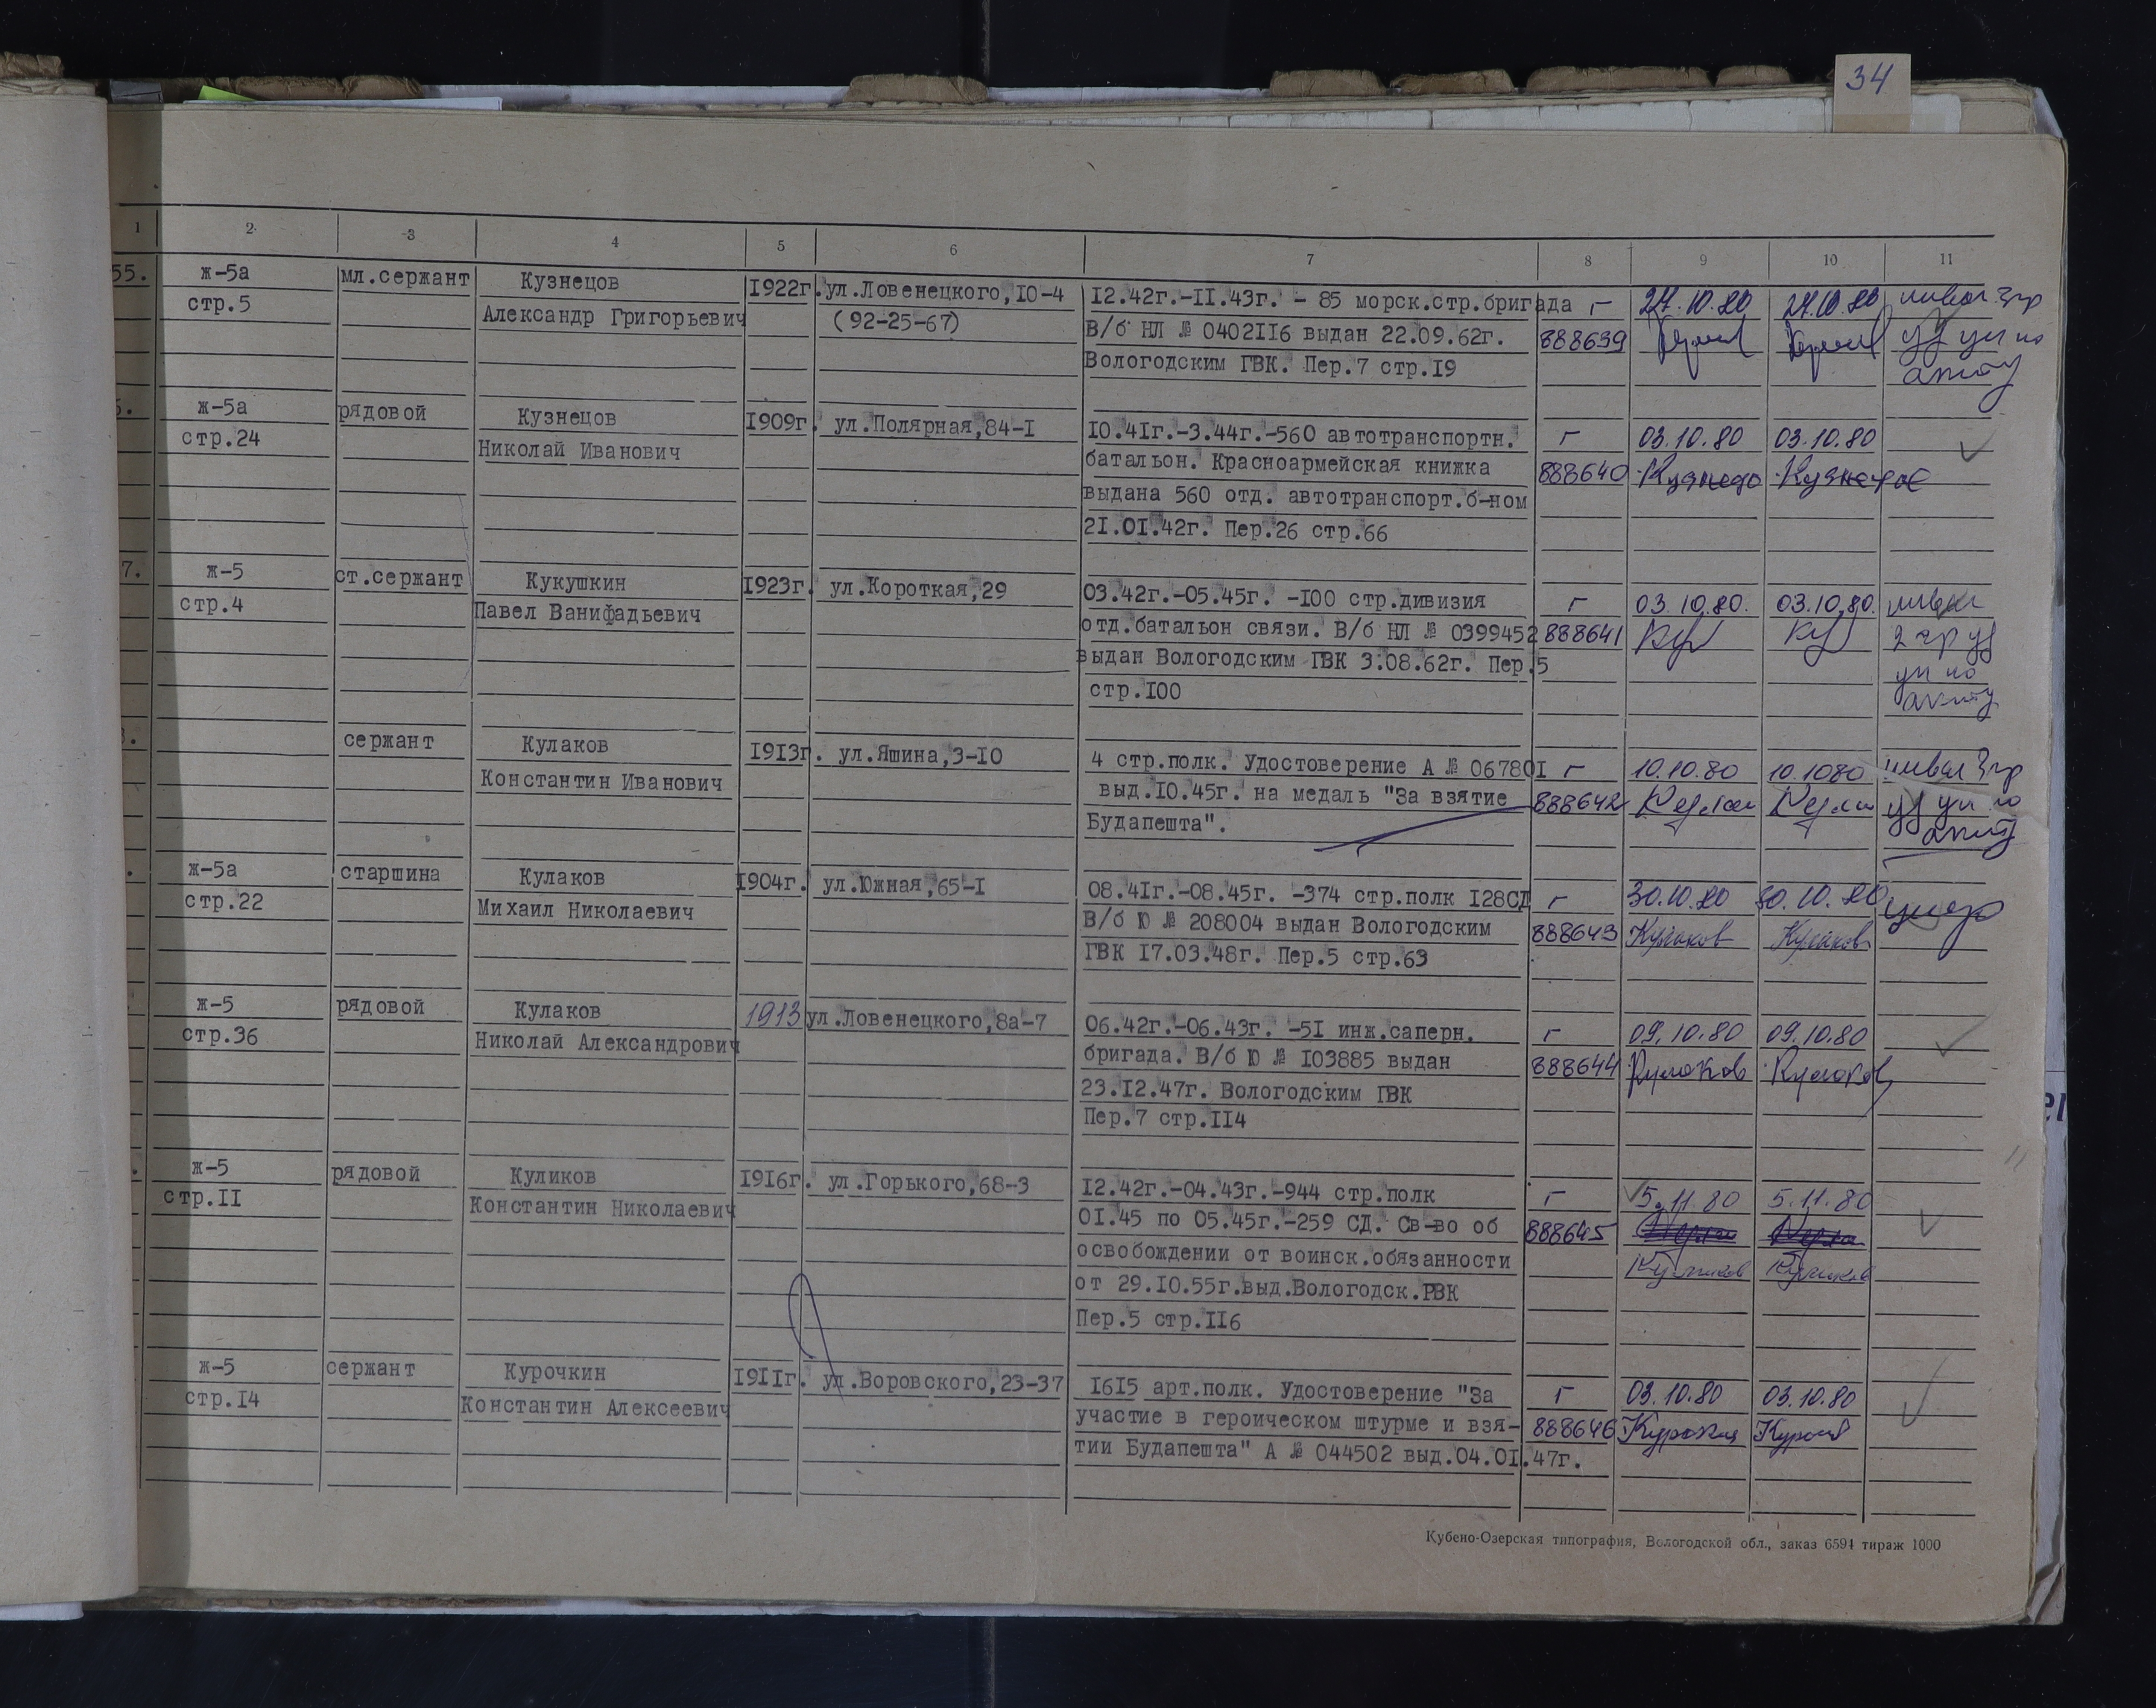 34
1 2 3 4 5 6 7 8 9 10 11
55. ж-5а мл.сержант Кузнецов 1922г. ул.Ловенецкого,10-4 12.42г.-11.43г. - 85 морск.стр.бригада г 24.10.80 24.10.80 инвал 3гр
стр.5 Александр Григорьевич (92-25-67) В/б НЛ № 0402116 выдан 22.09.62г. 888639
Вологодским ГВК. Пер.7 стр.19
ж-5а рядовой Кузнецов 1909г. ул.Полярная,84-1 10.41г.-3.44г.-560 автотранспортн. г 03.10.80 03.10.80
стр.24 Николай Иванович батальон. Красноармейская книжка 888640
выдана 560 отд. автотранспорт.б-ном
21.01.42г. Пер.26 стр.66
7. ж-5 ст.сержант Кукушкин 1923г. ул.Короткая,29 03.42г.-05.45г. -100 стр.дивизия г 03.10.80. 03.10.80.
стр.4 Павел Ванифадьевич отд.батальон связи. В/б НЛ № 0399452 888641
выдан Вологодским ГВК 3.08.62г. Пер.5
стр.100
сержант Кулаков 1913г. ул.Яшина,3-10 4 стр.полк. Удостоверение А № 067801 г 10.10.80 10.1080 инвал 3гр
Константин Иванович выд.10.45г. на медаль "За взятие 888642
Будапешта".
ж-5а старшина Кулаков 1904г. ул.Южная,65-1 08.41г.-08.45г. -374 стр.полк 128СД г 30.10.80 30.10.80
стр.22 Михаил Николаевич В/б Ю № 208004 выдан Вологодским 888643 Кулаков Кулаков
ГВК 17.03.48г. Пер.5 стр.63
ж-5 рядовой Кулаков 1913 ул.Ловенецкого,8а-7 06.42г.-06.43г. -51 инж.саперн. г 09.10.80 09.10.80
стр.36 Николай Александрович бригада. В/б Ю № 103885 выдан 888644 Кулаков Кулаков
23.12.47г. Вологодским ГВК
Пер.7 стр.114
ж-5 рядовой Куликов 1916г. ул.Горького,68-3 12.42г.-04.43г.-944 стр.полк г 5.11.80 5.11.80
стр.11 Константин Николаевич 01.45 по 05.45г.-259 СД. Св-во об 888645
освобождении от воинск.обязанности Куликов Куликов
от 29.10.55г.выд.Вологодск.РВК
Пер.5 стр.116
ж-5 сержант Курочкин 1911г. ул.Воровского,23-37 1615 арт.полк. Удостоверение "За г 03.10.80 03.10.80
стр.14 Константин Алексеевич участие в героическом штурме и взя- 888646
тии Будапешта" А № 044502 выд.04.01.47г.
Кубено-Озерская типография, Вологодской обл., заказ 6594 тираж 1000